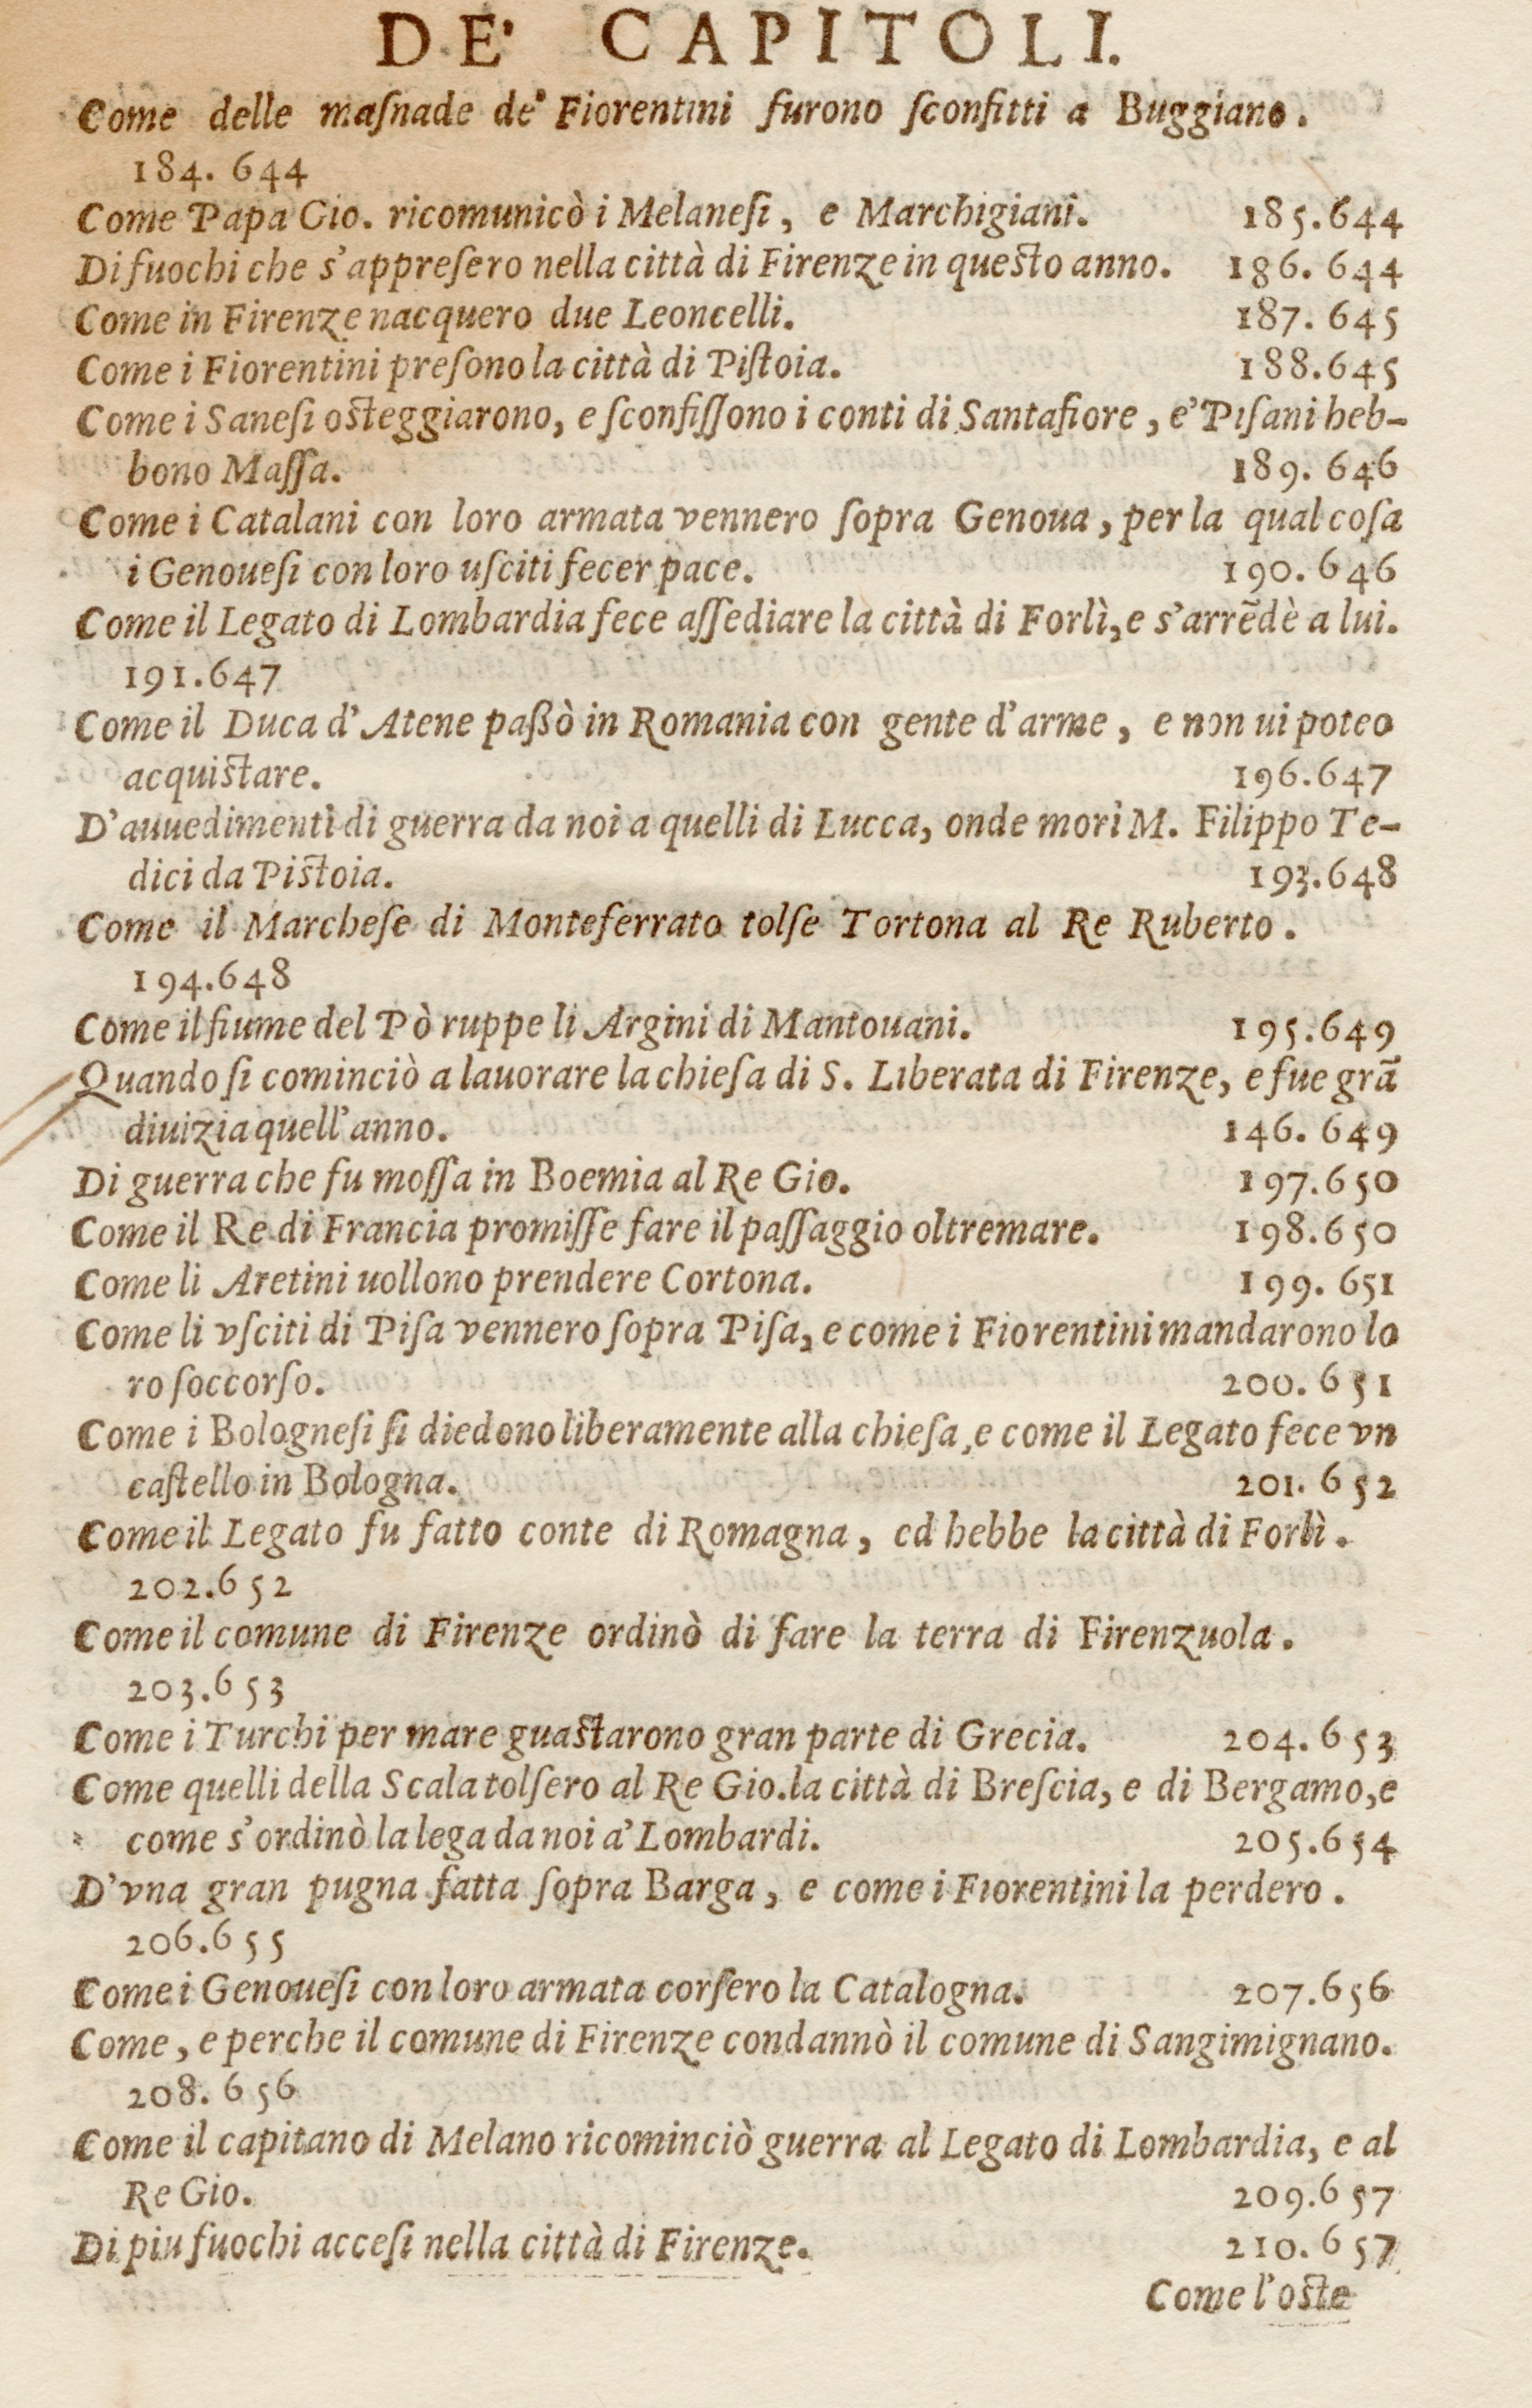 DE' CAPITOLI.
Come delle maſnade de' Fiorentini furono ſconfitti a Buggiano.
184. 644
Come Papa Gio. ricomunicò i Melaneſi, e Marchigiani. 185.644
Di fuochi che s'appreſero nella città di Firenze in queſto anno. 186. 644
Come in Firenze nacquero due Leoncelli. 187. 645
Come i Fiorentini preſono la città di Piſtoia. 188.645
Come i Saneſi oſteggiarono, e ſconfiſſono i conti di Santafiore, e' Piſani heb-
bono Maſſa. 189. 646
Come i Catalani con loro armata vennero ſopra Genoua, per la qual coſa
i Genoueſi con loro uſciti fecer pace. 190. 646
Come il Legato di Lombardia fece aſſediare la città di Forlì, e s'arrēdè a lui.
191.647
Come il Duca d'Atene paßò in Romania con gente d'arme, e non ui poteo
acquiſtare. 196.647
D'auuedimenti di guerra da noi a quelli di Lucca, onde morì M. Filippo Te-
dici da Piſtoia. 193.648
Come il Marcheſe di Monteferrato tolſe Tortona al Re Ruberto.
194.648
Come il fiume del Pò ruppe li Argini di Mantouani. 195.649
Quando ſi cominciò a lauorare la chieſa di S. Liberata di Firenze, e fue grā
diuizia quell'anno. 146. 649
Di guerra che fu moſſa in Boemia al Re Gio. 197.650
Come il Re di Francia promiſſe fare il paſſaggio oltremare. 198.650
Come li Aretini uollono prendere Cortona. 199. 651
Come li vſciti di Piſa vennero ſopra Piſa, e come i Fiorentini mandarono lo
ro ſoccorſo. 200. 651
Come i Bologneſi ſi diedono liberamente alla chieſa, e come il Legato fece vn
caſtello in Bologna. 201. 652
Come il Legato fu fatto conte di Romagna, ed hebbe la città di Forlì.
202.652
Come il comune di Firenze ordinò di fare la terra di Firenzuola.
203.653
Come i Turchi per mare guaſtarono gran parte di Grecia. 204. 653
Come quelli della Scala tolſero al Re Gio. la città di Breſcia, e di Bergamo, e
come s'ordinò la lega da noi a' Lombardi. 205.654
D'vna gran pugna fatta ſopra Barga, e come i Fiorentini la perdero.
206.655
Come i Genoueſi con loro armata corſero la Catalogna. 207.656
Come, e perche il comune di Firenze condannò il comune di Sangimignano.
208. 656
Come il capitano di Melano ricominciò guerra al Legato di Lombardia, e al
Re Gio. 209.657
Di piu fuochi acceſi nella città di Firenze. 210. 657
Come l'oſte